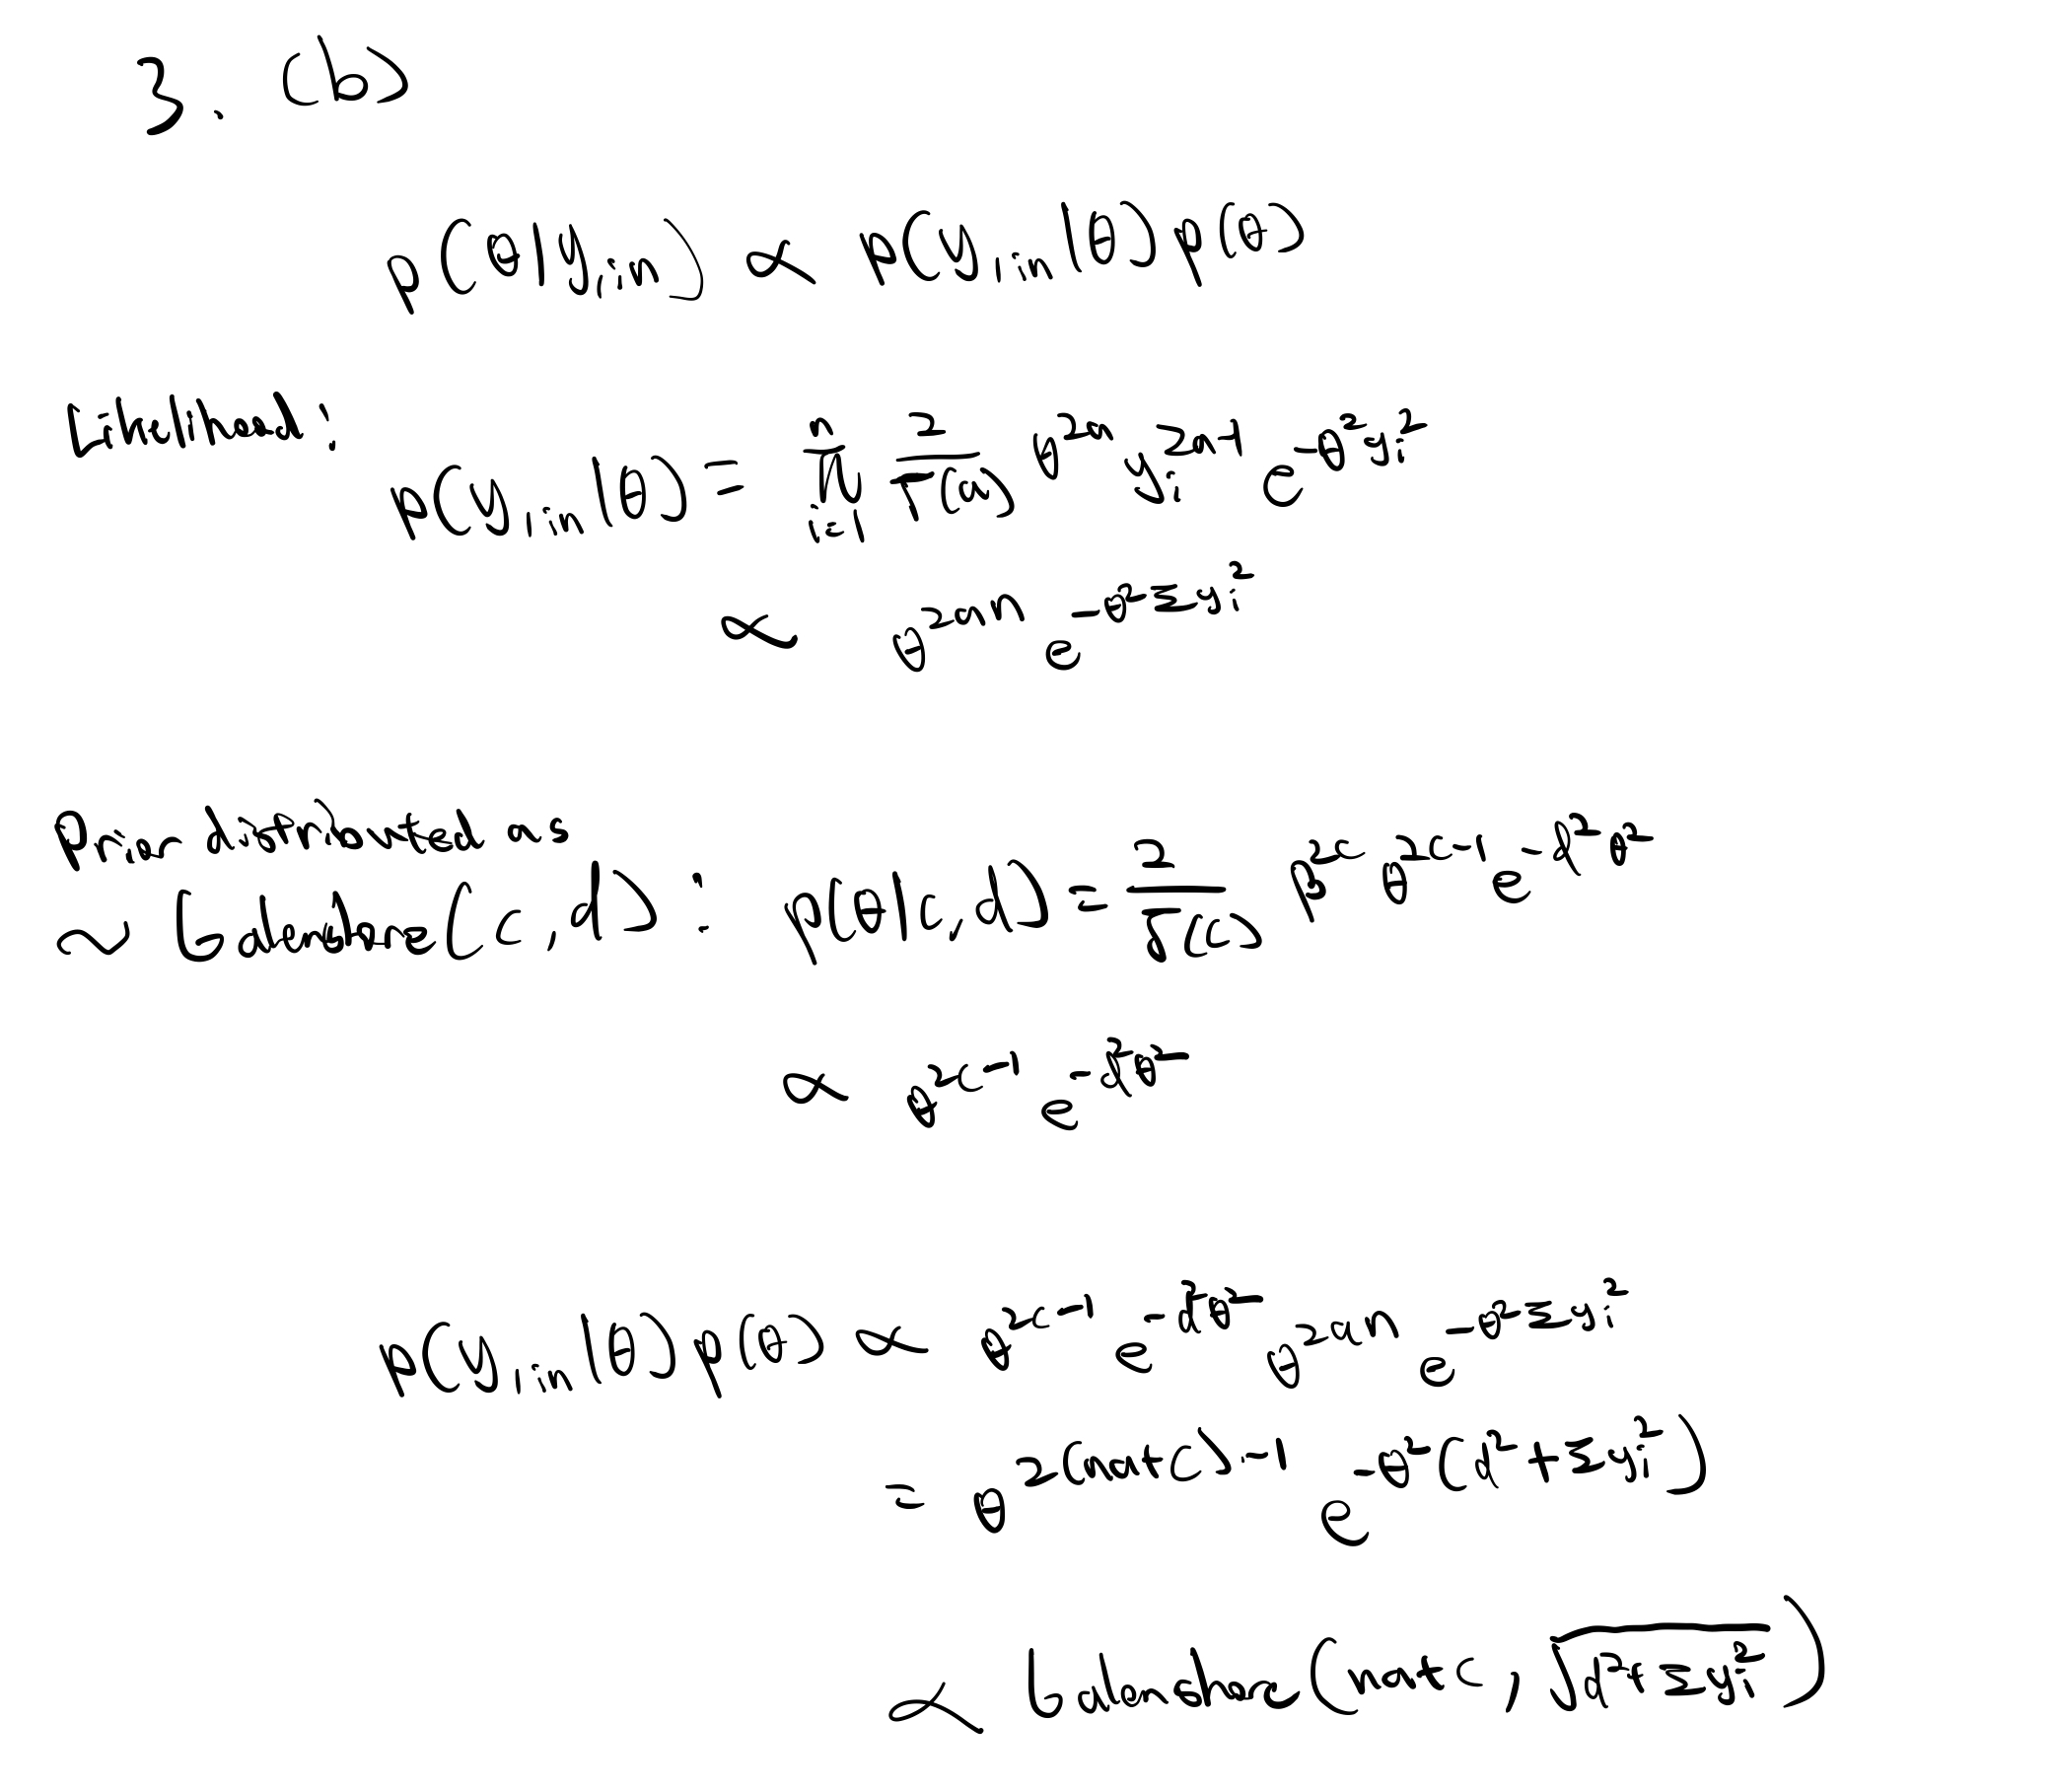 3. (b)
p(θ|y₁:n) ∝ p(y₁:n|θ)p(θ)
Likelihood:
p(y₁:n|θ) = ∏ᵢ₌₁ⁿ 2/Γ(a) θ^{2a} yᵢ^{2a-1} e^{-θ²yᵢ²}
∝ θ^{2an} e^{-θ²Σyᵢ²}
Prior distributed as
~ Galenshore(c, d): p(θ|c,d) = 2/Γ(c) d^{2c} θ^{2c-1} e^{-d²θ²}
∝ θ^{2c-1} e^{-d²θ²}
p(y₁:n|θ)p(θ) ∝ θ^{2c-1} e^{-d²θ²} θ^{2an} e^{-θ²Σyᵢ²}
= θ^{2(na+c)-1} e^{-θ²(d²+Σyᵢ²)}
∝ Galenshore(na+c, √(d²+Σyᵢ²))